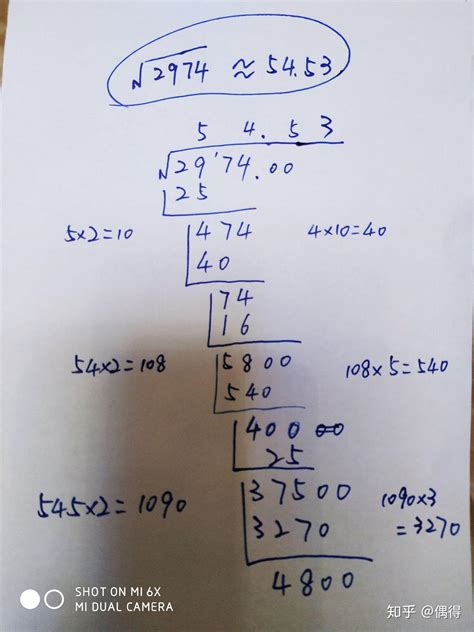 √2974 ≈ 54.53
5 4. 5 3
√29'74.00
25
5×2=10 474 4×10=40
40
74
16
54×2=108 5800 108×5=540
540
400 00
25
545×2=1090 37500 1090×3
3270 =3270
4800
SHOT ON MI 6X
MI DUAL CAMERA
知乎 @偶得